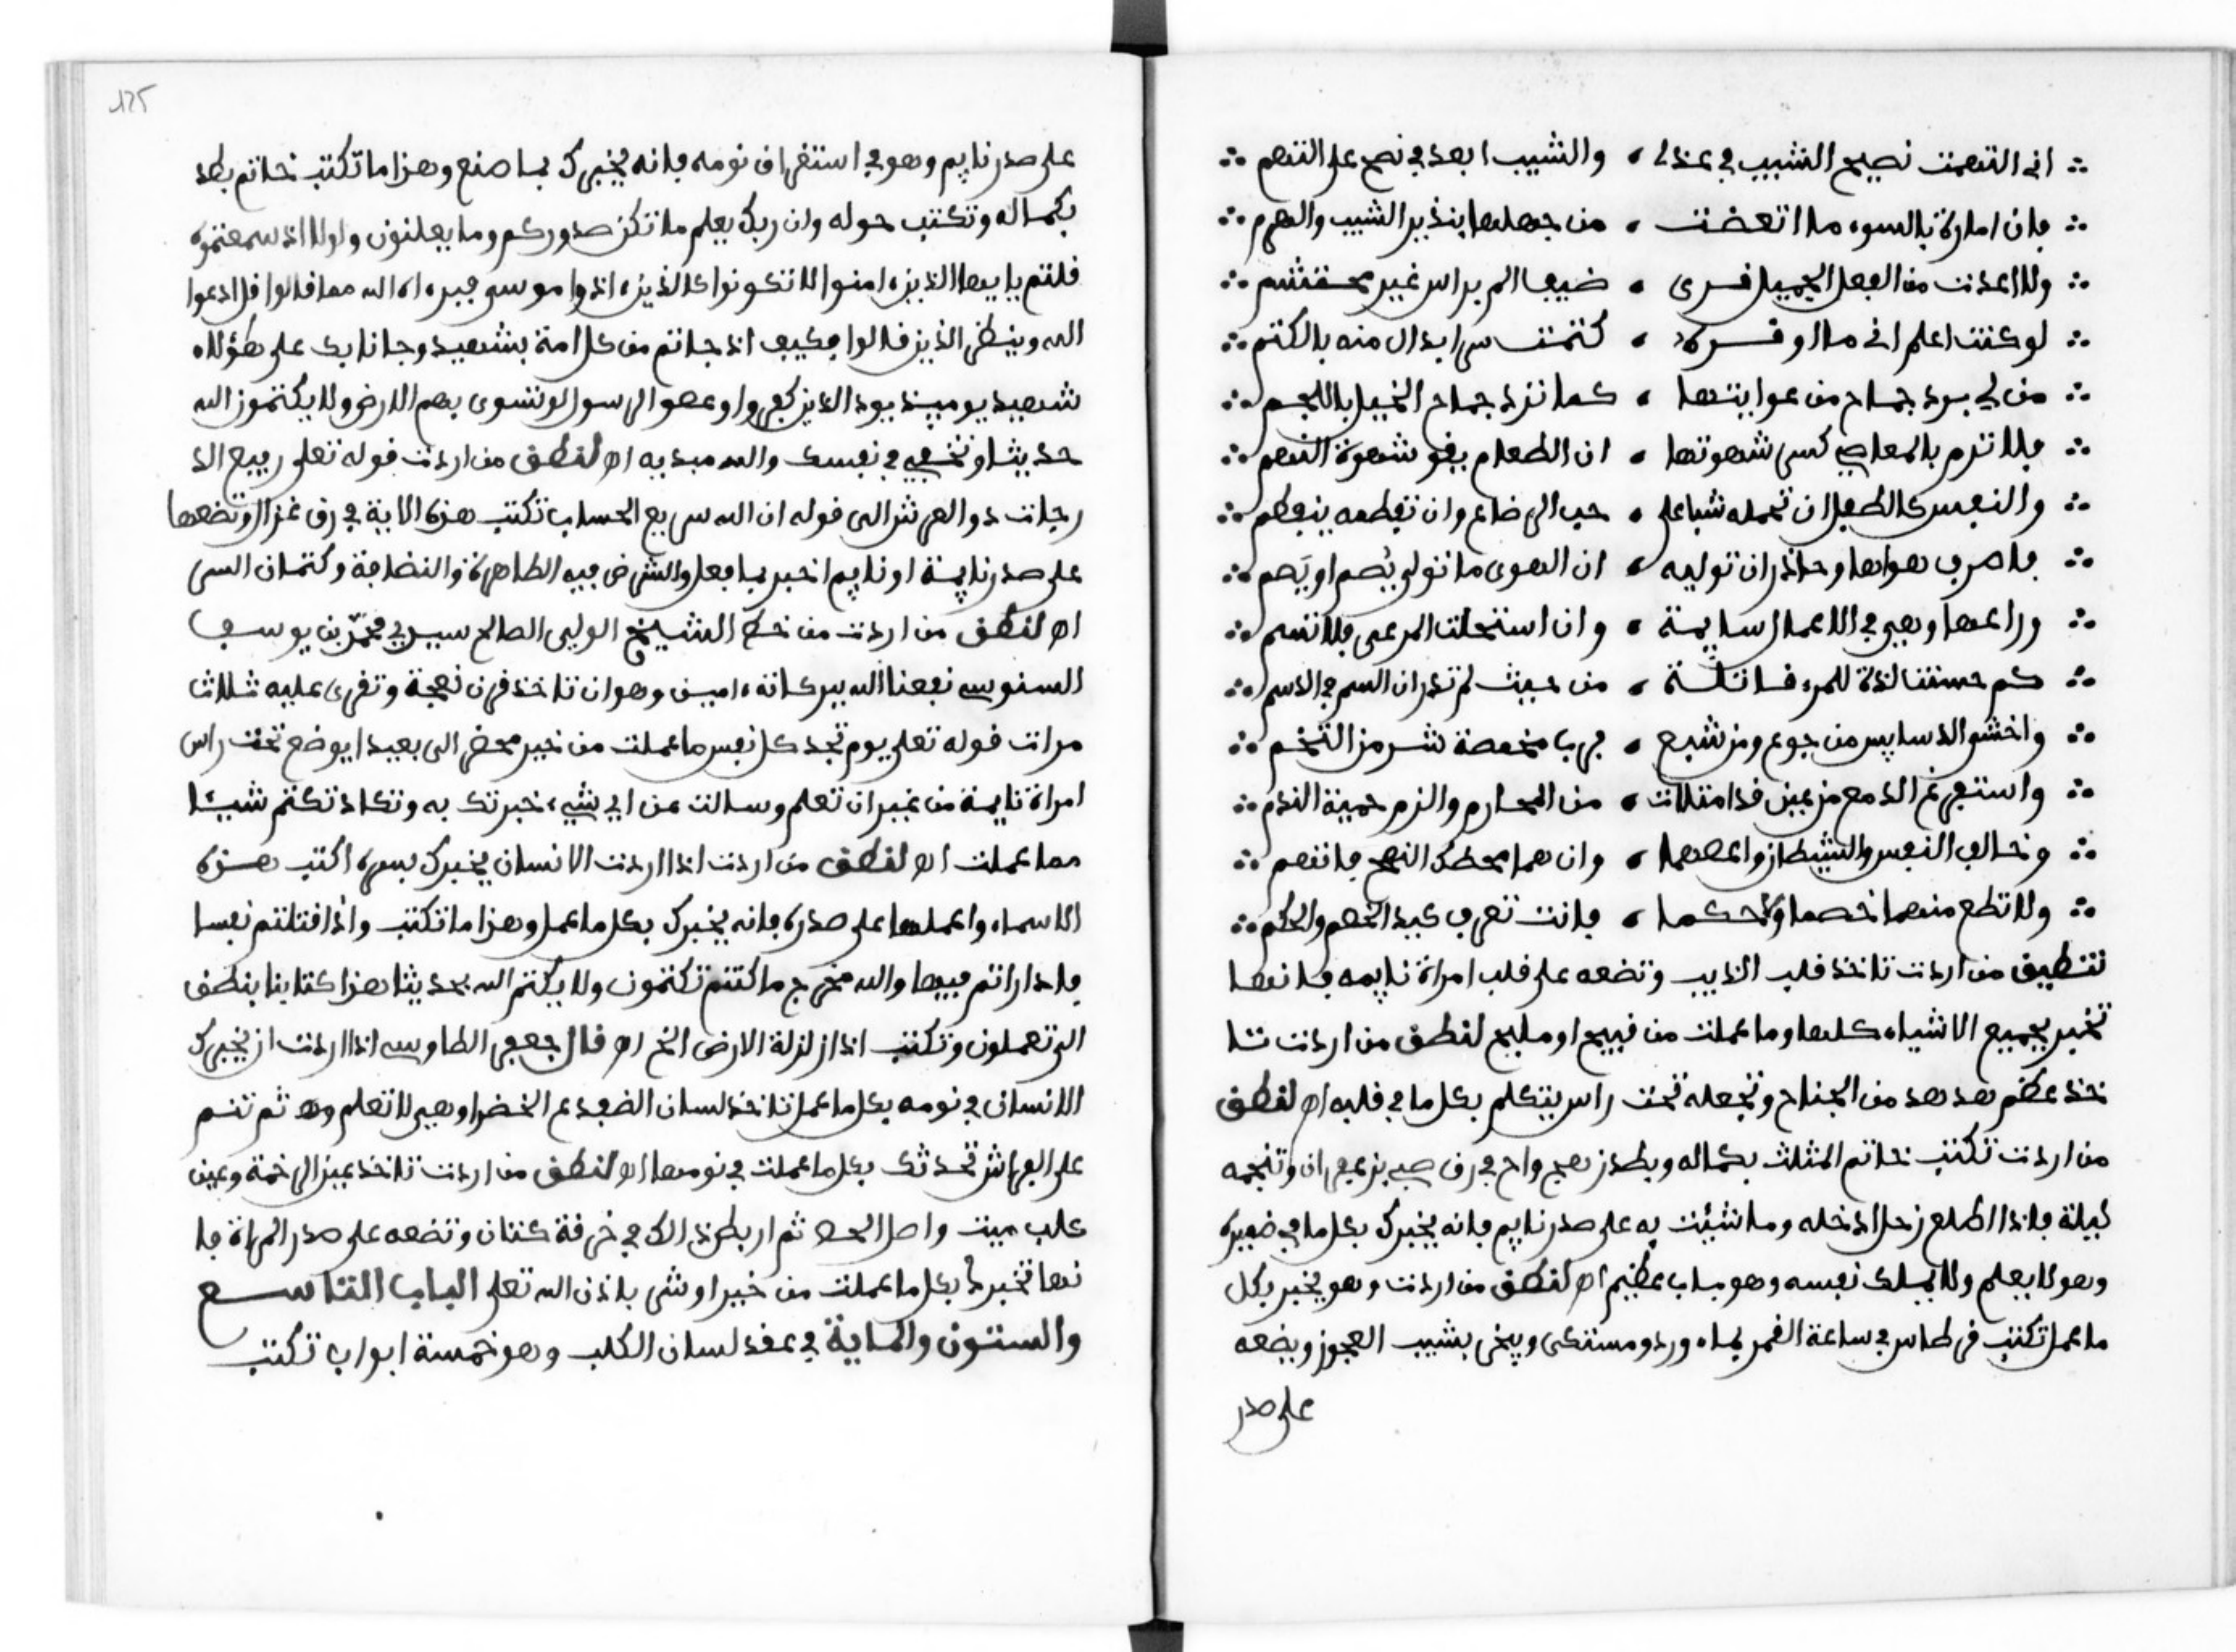 ∴ انى اتتهمت نصيح الشيب في عذلي ، والشيب ابعد في نصح على التهم ∴
∴ فان امارة بالسوء ما اتعضت ، من جهلها بنذير الشيب والهرم ∴
∴ ولا اعدت من الفعل الجميل قرى ، ضيف الم براس غير محتشم ∴
∴ لو كنت اعلم انى ما اوقره ، كتمت سرا بدال منه بالكتم ∴
∴ من لي برد جماح من غوايتها ، كما ترد جماح الخيل باللجم ∴
∴ فلا ترم بالمعاصي كسر شهوتها ، ان الطعام يقو شهوة النهم ∴
∴ والنفس كالطفل ان تهمله شبا على ، حب الرضاع وان تفطمه ينفطم ∴
∴ فاصرف هواها وحاذر ان توليه ، ان الهوى ما تولى يُصم او يَصم ∴
∴ وراعها وهي في الاعمال سايمة ، وان استحلت المرعى فلا تسم ∴
∴ كم حسنت لذة للمرء قاتلة ، من حيث لم تدر ان السم في الدسم ∴
∴ واخش الدسايس من جوع ومن شبع ، فربا مخمصة شر من التخم ∴
∴ واستفرغ الدمع من عين قد امتلات ، من المحارم والزم حمية الندم ∴
∴ وخالف النفس والشيطان واعصهما ، وان هما محظك النصح فاتهم ∴
∴ ولا تطع منهما خصما ولا حكما ، فانت تعرف كيد الخصم والحكم ∴
تنطيق من اردت تاخذ قلب الذيب وتضعه على قلب امراة نايمه فانها
تخبر بجميع الاشياء كلها وما عملت من قبيح او مليح لنطق من اردت تا
خذ عظم هدهد من الجناح وتجعله تحت راس يتكلم بكل ما في قلبه اھ لنطق
من اردت تكتب خاتم المثلث بكماله وبطد زهج واح في رق صبي بزعفران وتنجمه
ليلة فاذا اطلع زحل ادخله وما شئت به على صدر نايم فانه يخبرك بكل ما في ضميره
وهو لا يعلم ولا يملك نفسه وهو باب عظيم اھ لنطق من اردت وهو يخبر بكل
ما عمل تكتب في طاس في ساعة القمر بماء ورد ومستكى ويبخر بشيب العجوز ويضعه
على صدر
125
على صدر نايم وهو في استغراق نومه فانه يخبرك بما صنع وهذا ما تكتب خاتم بطد
بكماله وتكتب حوله وان ربك يعلم ما تكن صدوركم وما يعلنون ولولا اذ سمعتموه
قلتم يايها الذين ءامنوا لا تكونوا كالذين ءاذوا موسى فبرءاه الله مما قالوا قل ادعوا
الله وينطق الذين قالوا فكيف اذ جاتم من كل امة بشهيد وجانا بك على هؤلاء
شهيد يوميذ يود الذين كفروا وعصوا الرسول لو تسوى بهم الارض ولا يكتمون الله
حديثا وتخفي في نفسك والله مبديه اھ لنطق من اردت قوله تعلى رفيع الد
رجات ذو العرش الى قوله ان الله سريع الحساب تكتب هذه الاية في رق غزال وتضعها
على صدر نايمة او نايم اخبر بما فعل والشرض فيه الطاهرة والنضافة وكتمان السر
اھ لنطق من اردت من خط الشيخ الولي الصالح سيدي محمد بن يوسف
السنوسي نفعنا الله ببركاته ءامين وهو ان تاخذ قرن نعجة وتقرى عليه ثلاث
مرات قوله تعلى يوم تجد كل نفس ما عملت من خير محضر الى بعيدا يوضع تحت راس
امراة نايمة من غير ان تعلم وسالت عن اي شيء خبرتك به وتكاد تكتم شيئا
مما عملت اھ لنطق من اردت اذا اردت الانسان يخبرك بسره اكتب هذه
الاسماء واعملها على صدره فانه يخبرك بكل ما عمل وهذا ما تكتب واذ قتلتم نفسا
فادارأتم فيها والله مخرج ما كنتم تكتمون ولا يكتم الله بحديثا هذا كتابنا ينطق
الى تعملون وتكتب اذا زلزلة الارض الخ اھ قال جعفر الطاوسي اذا اردت ان يخبرك
الانسان في نومه بكل ما عمل تاخذ لسان الضفدع الخضرا وهي لا تعلم وھ ثم تنم
على الفراش تحدثك بكل ما عملت في نومها اھ لنطق من اردت تاخذ عين الرخمة وعين
كلب ميت واصل الحص ثم اربط ذالك في خرقة كتان وتضعه على صدر المراة فا
نها تخبرك بكل ما عملت من خير او شر باذن الله تعلى الباب التاسع
والستون والماية في عقد لسان الكلب وهو خمسة ابواب تكتب